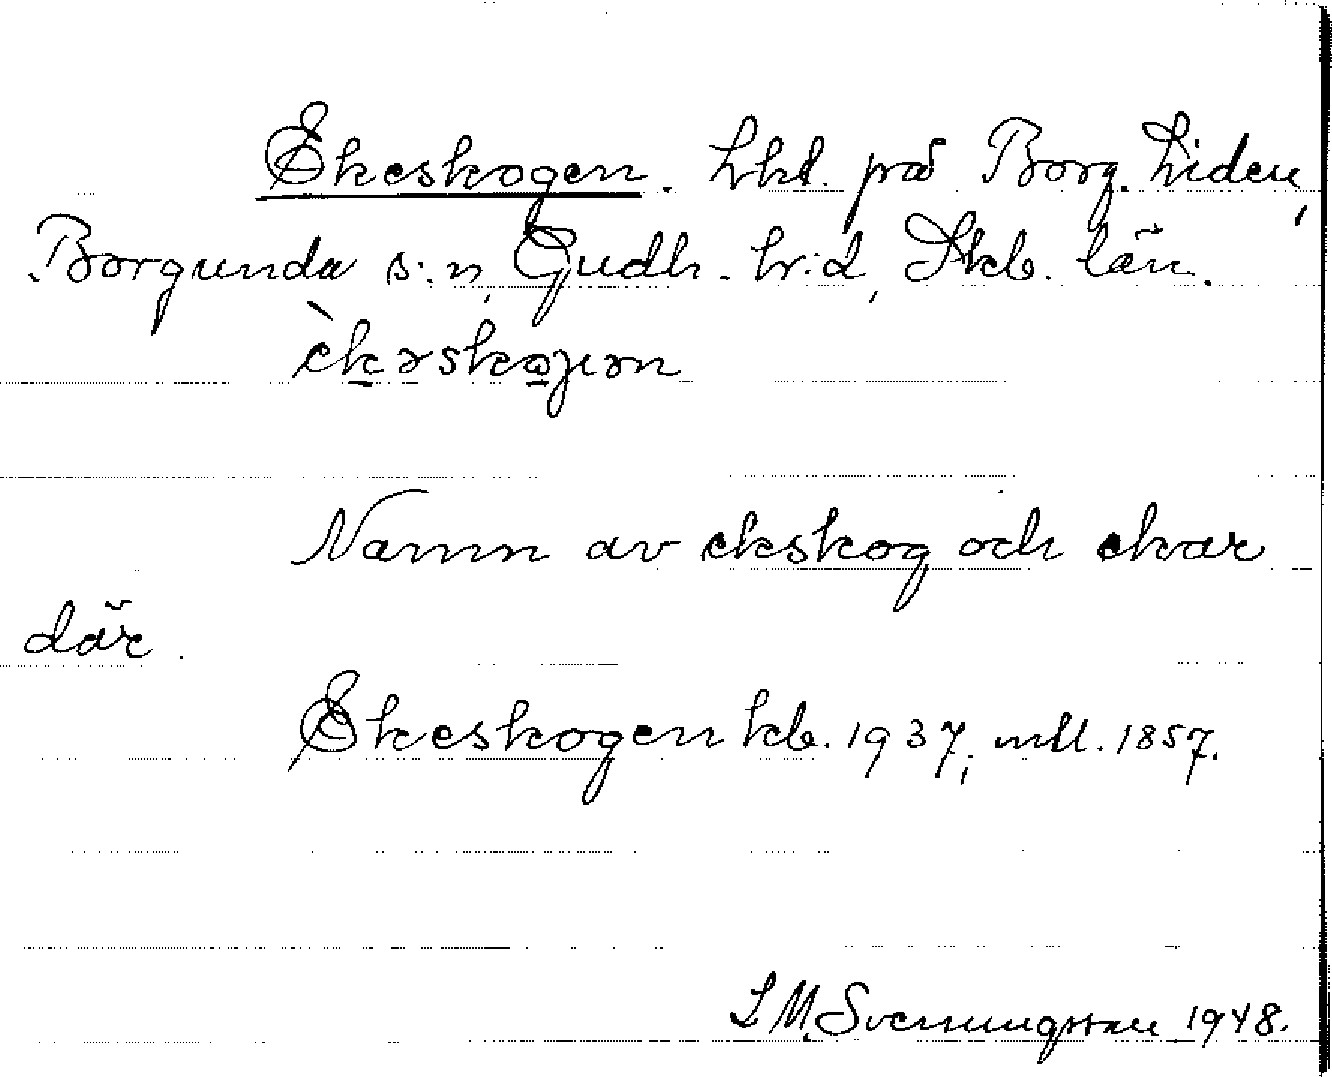 Ekeskogen. Lht. på Borg. Liden,
Borgunda s:n, Gudh. hr:d, Skb. län.
èkəskogən
Namn av ekskog och ekar
där.
Ekeskogen kb. 1937, mtl. 1857.
L M Svenungsson 1948.